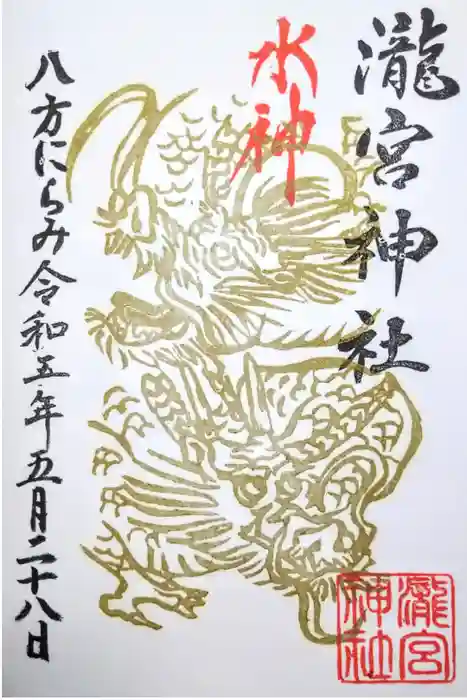 瀧宮神社
水神
八方にらみ令和五年五月二十八日
瀧宮
神社